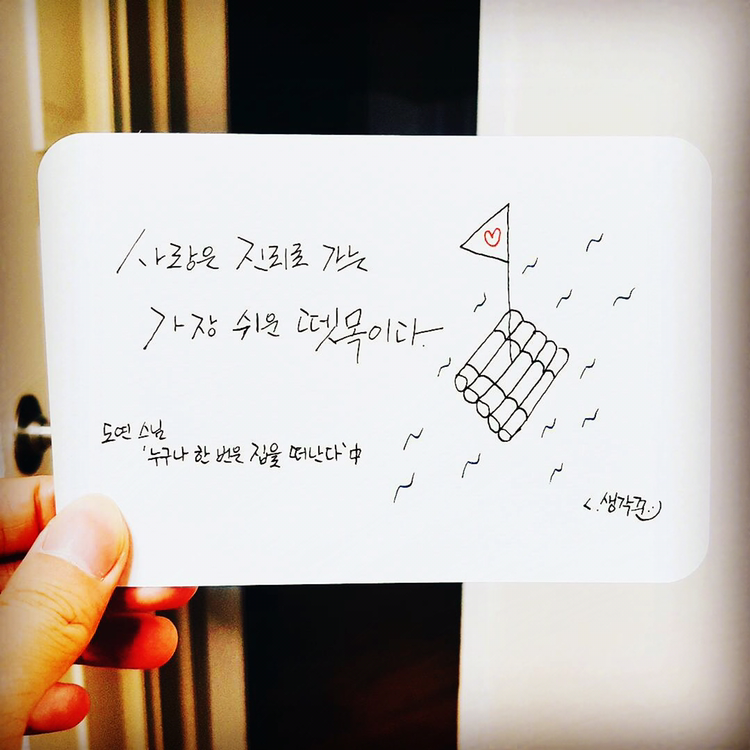 사랑은 진리로 가는
가장 쉬운 뗏목이다.
도연 스님
'누구나 한 번은 집을 떠난다' 中
<.생각쭌:)